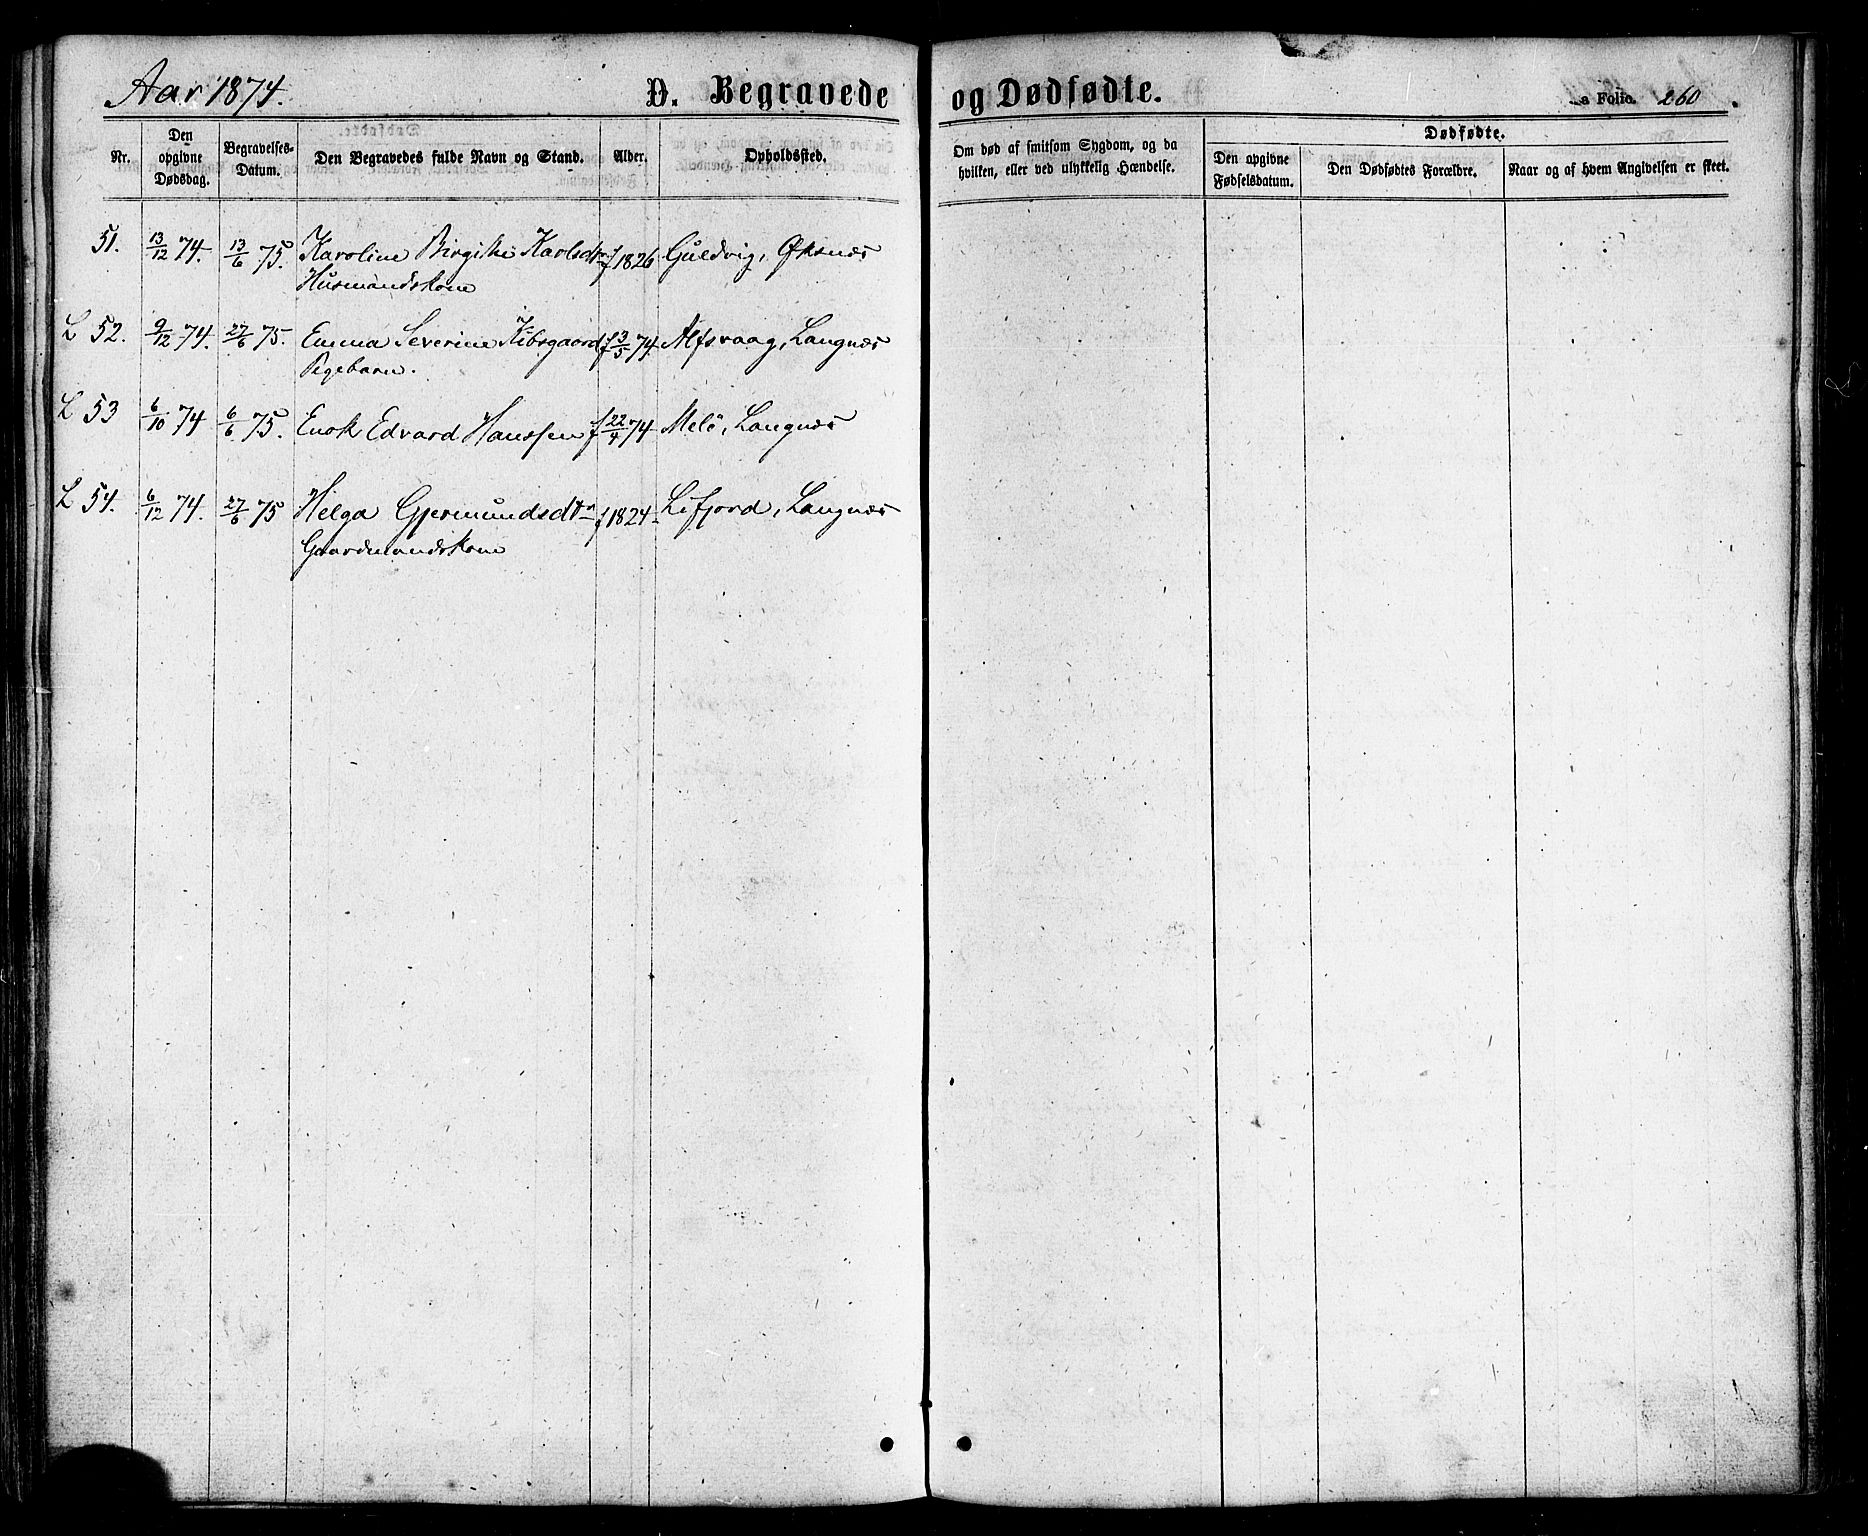 Aar 1874. D. Begravede og Dødfødte. Folio. 260
Nr.
Den opgivne Dødsdag.
Begravelses-Datum.
Den Begravedes fulde Navn og Stand.
Alder.
Opholdssted.
Om død af smitsom Sygdom, og da
hvilken, eller ved ulykkelig Hændelse.
Dødfødte.
Den opgivne
Fødselsdatum.
Den Dødfødtes Forældre.
Naar og af hvem Angivelsen er skeet.
51. 13/12 74. 13/6 75. Karoline Birgitte Karlsdtr f 1826 Guldvig, Øksnæs
Husmandskone
L 52. 9/12 74. 27/6 75. Emma Severine Kibsgaard f 3/5 74 Alfsvaag, Langnæs
Pigebarn.
L 53 6/10 74 6/6 75. Enok Edvard Hanssen f 22/4 74 Melö, Langnæs
L 54. 6/12 74. 27/6 75 Helga Gjermundsdtr f 1824 Lifjord, Langnæs
Gaardmandskone